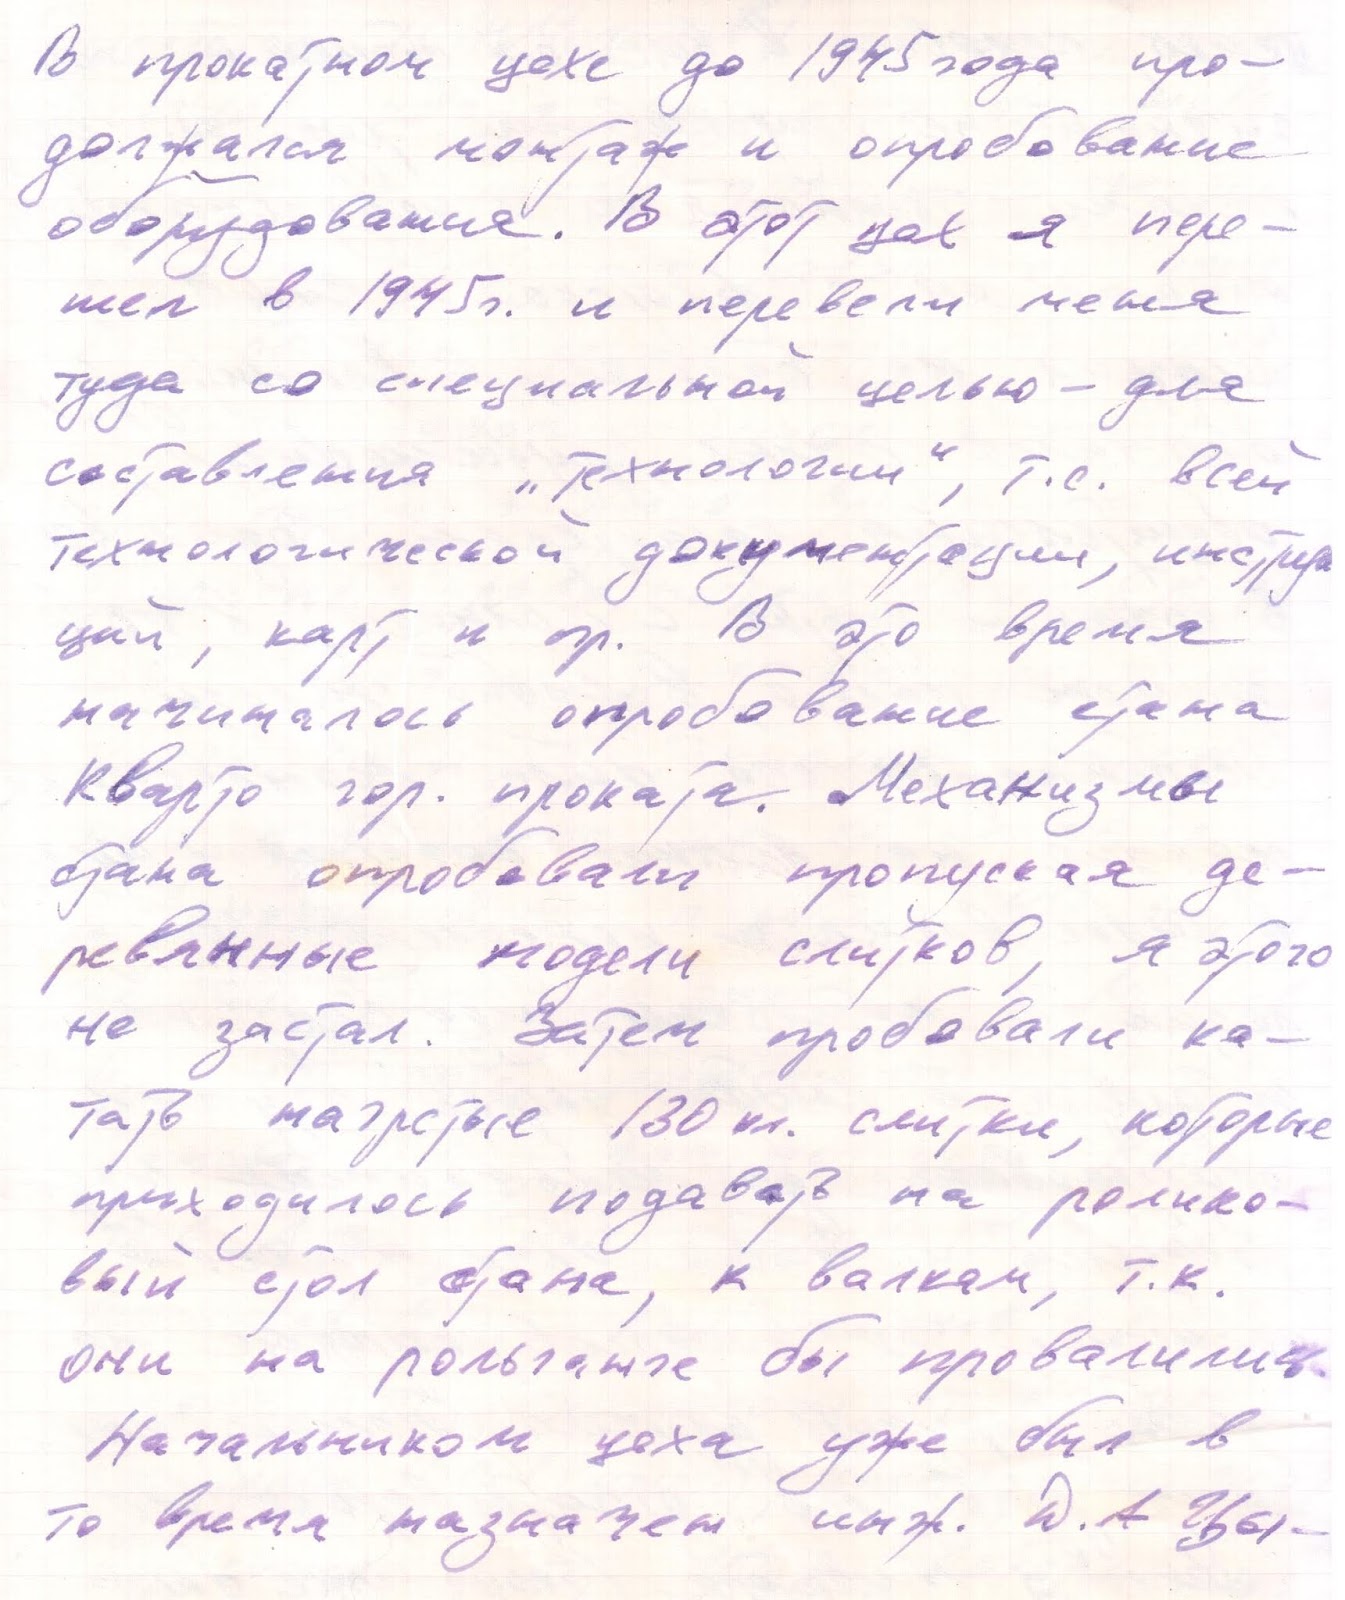 В прокатном цехе до 1945 года про-
должался монтаж и опробование
оборудования. В этот цех я пере-
шел в 1945г. и перевели меня
туда со специальной целью – для
составления „технологии“, т.е. всей
технологической документации, инструк
ций, карт и пр. В это время
начиналось опробование стана
Кварто гор. проката. Механизмы
стана опробовали пропуская де-
ревянные модели слитков, я этого
не застал. Затем пробовали ка-
тать нагретые 130 кг. слитки, которые
приходилось подавать на ролико-
вый стол стана, к валкам, т.к.
они на рольганге бы провалились.
Начальником цеха уже был в
то время назначен инж. Д. А Цы-